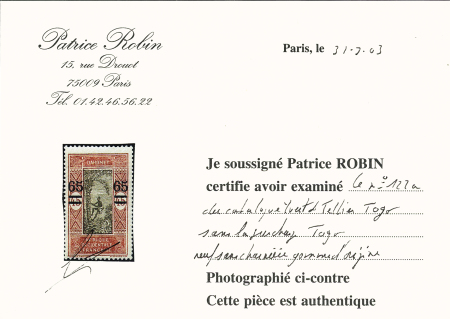 Patrice Robin
15, rue Drouot
75009 Paris
Tél. 01.42.46.56.22
Paris, le 31-3.03
65 65
Je soussigné Patrice ROBIN
certifie avoir examiné le n° 122a
du catalogue Yvert et Tellier Togo
sans la surcharge Togo
neuf sans charnière gomme d'origine
Photographié ci-contre
Cette pièce est authentique